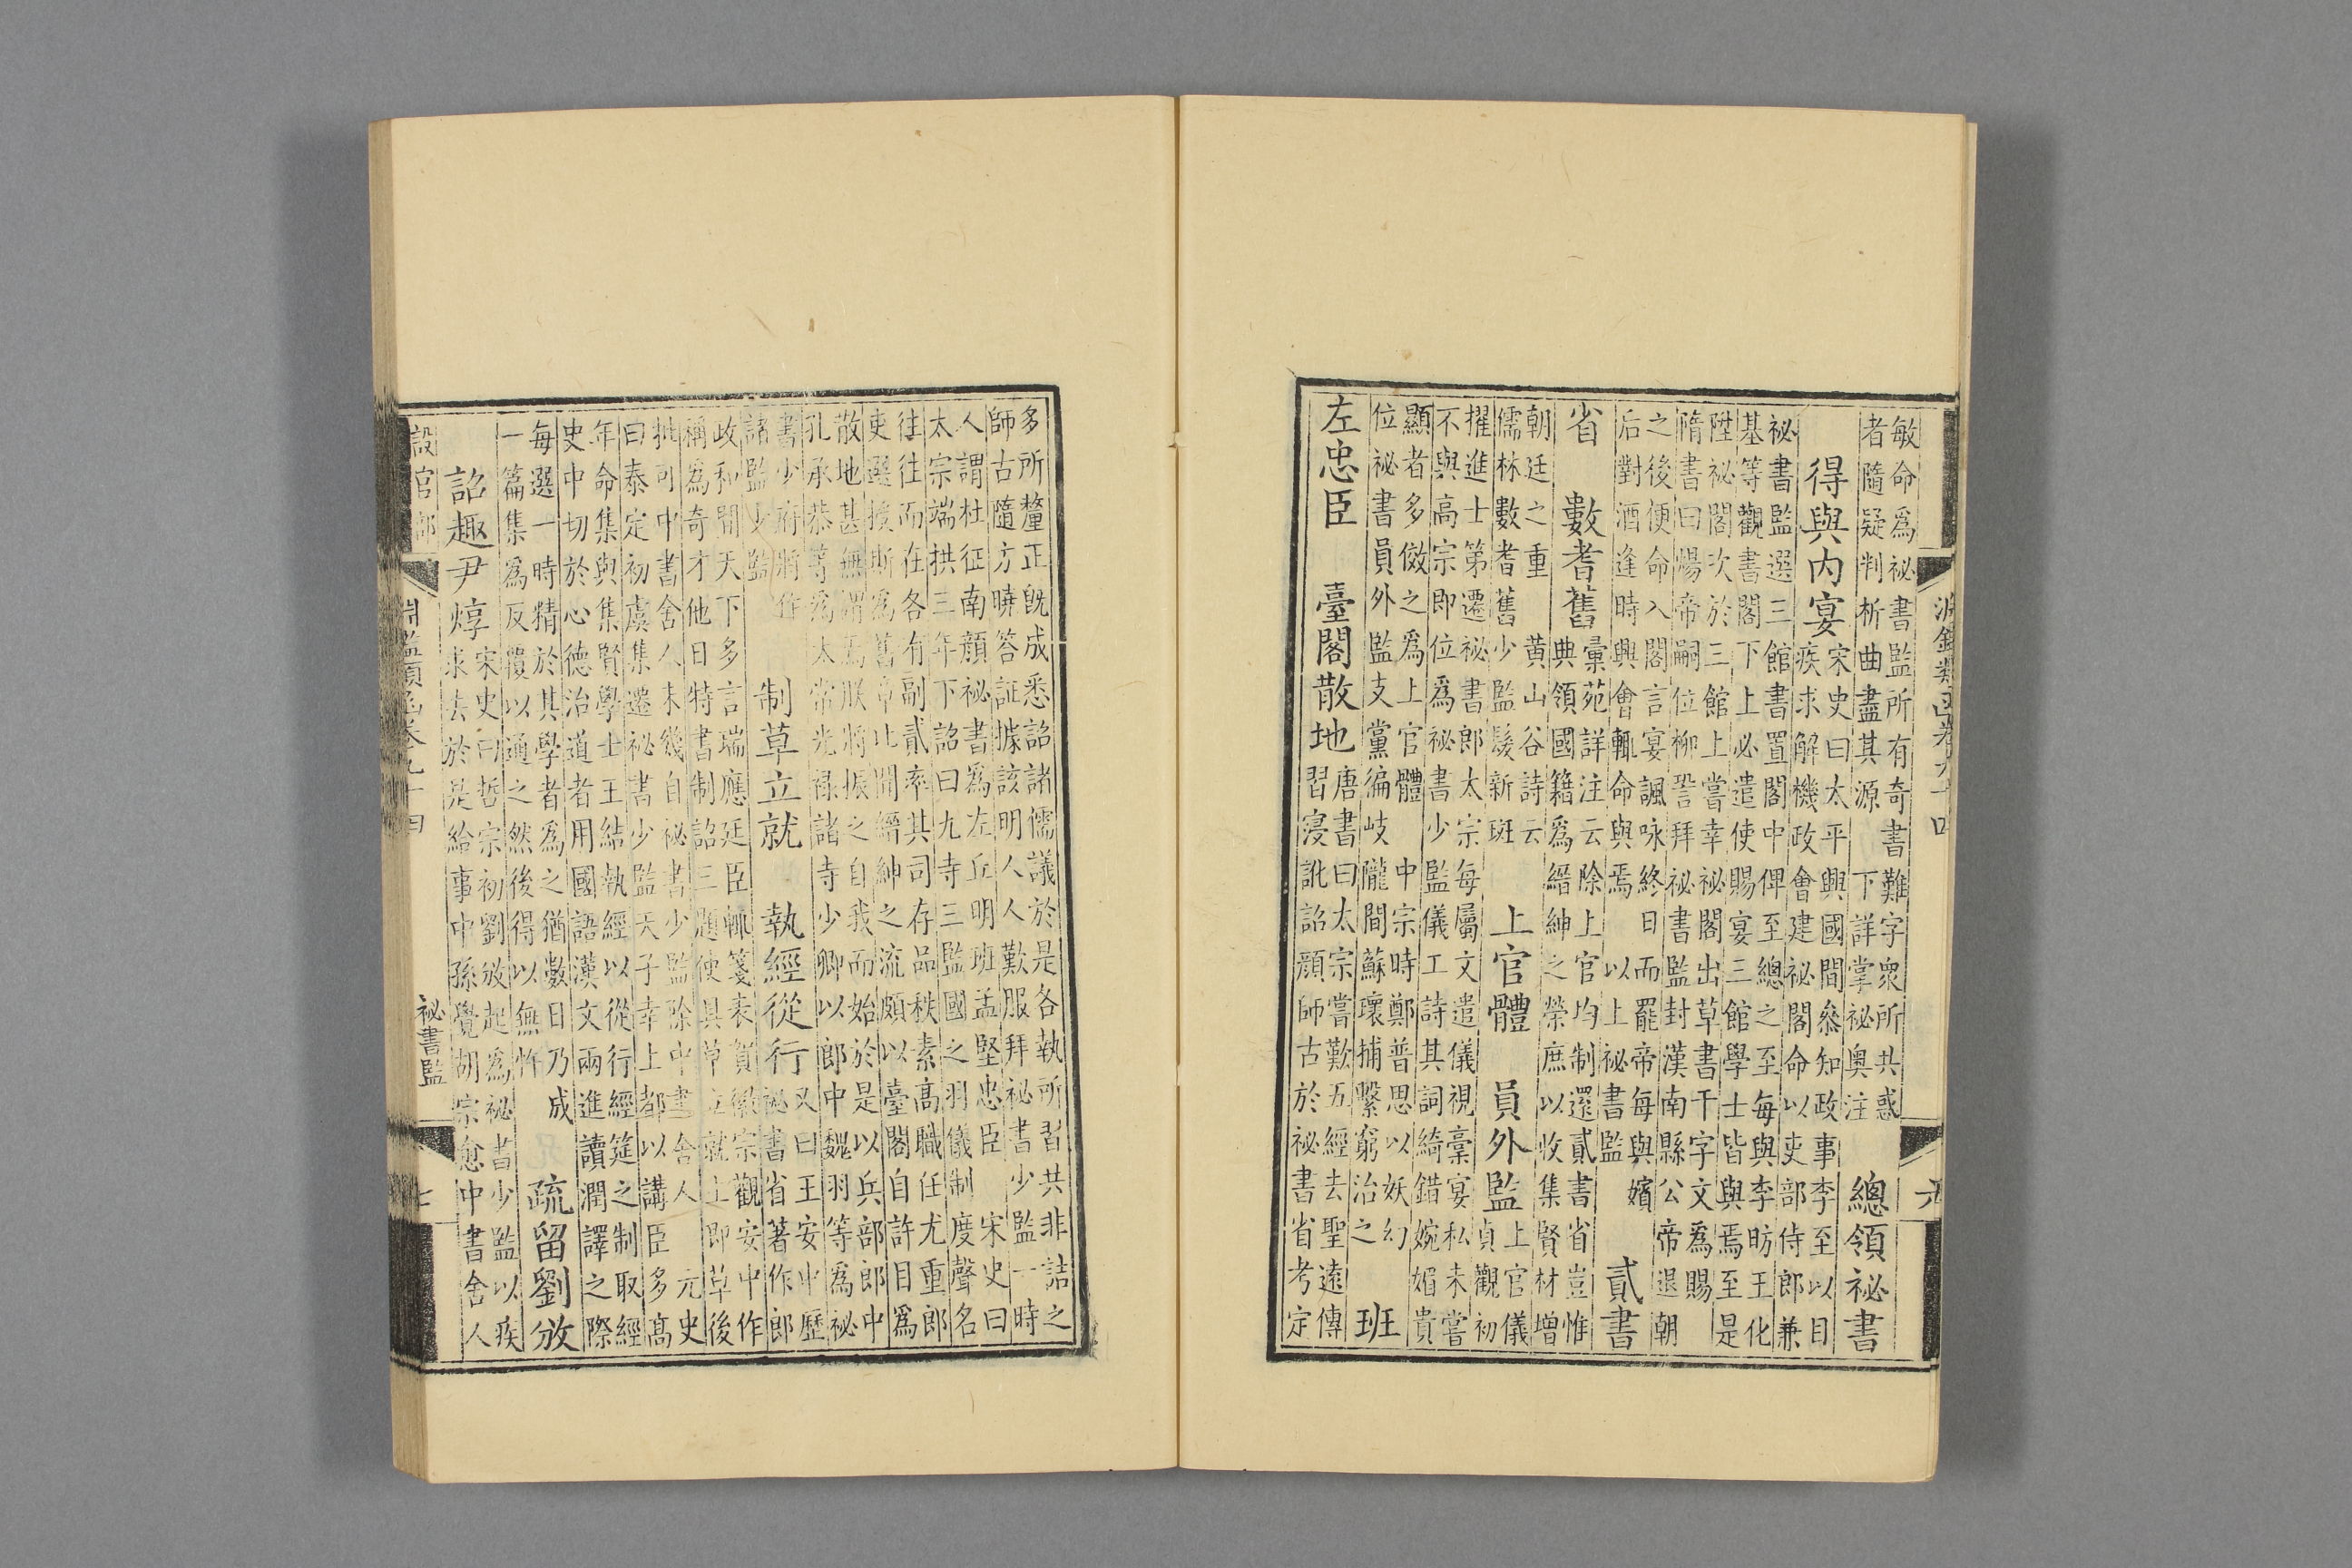 淵鑑類函卷九十四
六
敏命為祕書監所有奇書難字衆所共惑
者隨疑判析曲盡其源　下詳掌祕奧注
總領祕書
得與内宴
宋史曰太平興國間叅知政事李至以目
疾求解機政會建祕閣命以吏部侍郎兼
祕書監選三館書置閣中俾至總之至每與李昉王化
基等觀書閣下上必遣使賜宴三館學士皆與焉至是
陞祕閣次於三館上嘗幸祕閣出草書千字文為賜
隋書曰煬帝嗣位柳䛒拜祕書監封漢南縣公帝退朝
之後便命入閣言宴諷咏終日而罷帝每與嬪
后對酒逢時興會輒命與焉　以上祕書監
貳書
省　數耆舊
彙苑詳注云除上官均制還貳書省豈惟
典領國籍為縉紳之榮庶以收集賢材增
朝廷之重　黄山谷詩云
儒林數耆舊少監髮新斑
上官體　員外監
上官儀
貞觀初
擢進士第遷祕書郎太宗每屬文遣儀視稾宴私未嘗
不與高宗即位為祕書少監儀工詩其詞綺錯婉媚貴
顯者多倣之為上官體　中宗時鄭普思以妖幻
位祕書員外監支黨徧岐隴間蘇瓌捕繫窮治之
班
左忠臣　臺閣散地
唐書曰太宗嘗歎五經去聖遠傳
習寖訛詔顔師古於祕書省考定
多所釐正既成悉詔諸儒議於是各執所習共非詰之
師古隨方曉答証據該明人人歎服拜祕書少監一時
人謂杜征南顔祕書為左丘明班孟堅忠臣　宋史曰
太宗端拱三年下詔曰九寺三監國之羽儀制度聲名
往往而在各有副貳率其司存品秩素高職任尤重郎
吏選授斯為舊章比聞縉紳之流頗以臺閣自許目為
散地甚無謂焉朕將振之自我而始於是以兵部郎中
孔承恭等為太常光祿諸寺少卿以郎中魏羽等為祕
書少府將作
諸監少監
制草立就　執經從行
又曰王安中歷
祕書省著作郎
政和間天下多言瑞應廷臣輒箋表賀徽宗觀安中作
稱為奇才他日特書制詔三題使具草立就上即草後
批可中書舍人未幾自祕書少監除中書舍人　元史
曰泰定初虞集遷祕書少監天子幸上都以講臣多髙
年命集與集賢學士王結執經以從行經筵之制取經
史中切於心德治道者用國語漢文兩進讀潤譯之際
每選一時精於其學者為之猶數日乃成
一篇集為反覆以通之然後得以無忤
疏留劉攽
詔趣尹焞
宋史曰哲宗初劉攽起為祕書少監以疾
求去於是給事中孫覺胡宗愈中書舍人
設官部
淵鑑類函卷九十四
祕書監
七